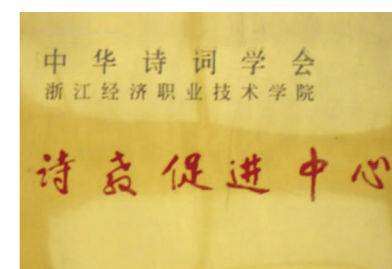 中华诗词学会
浙江经济职业技术学院
诗教促进中心